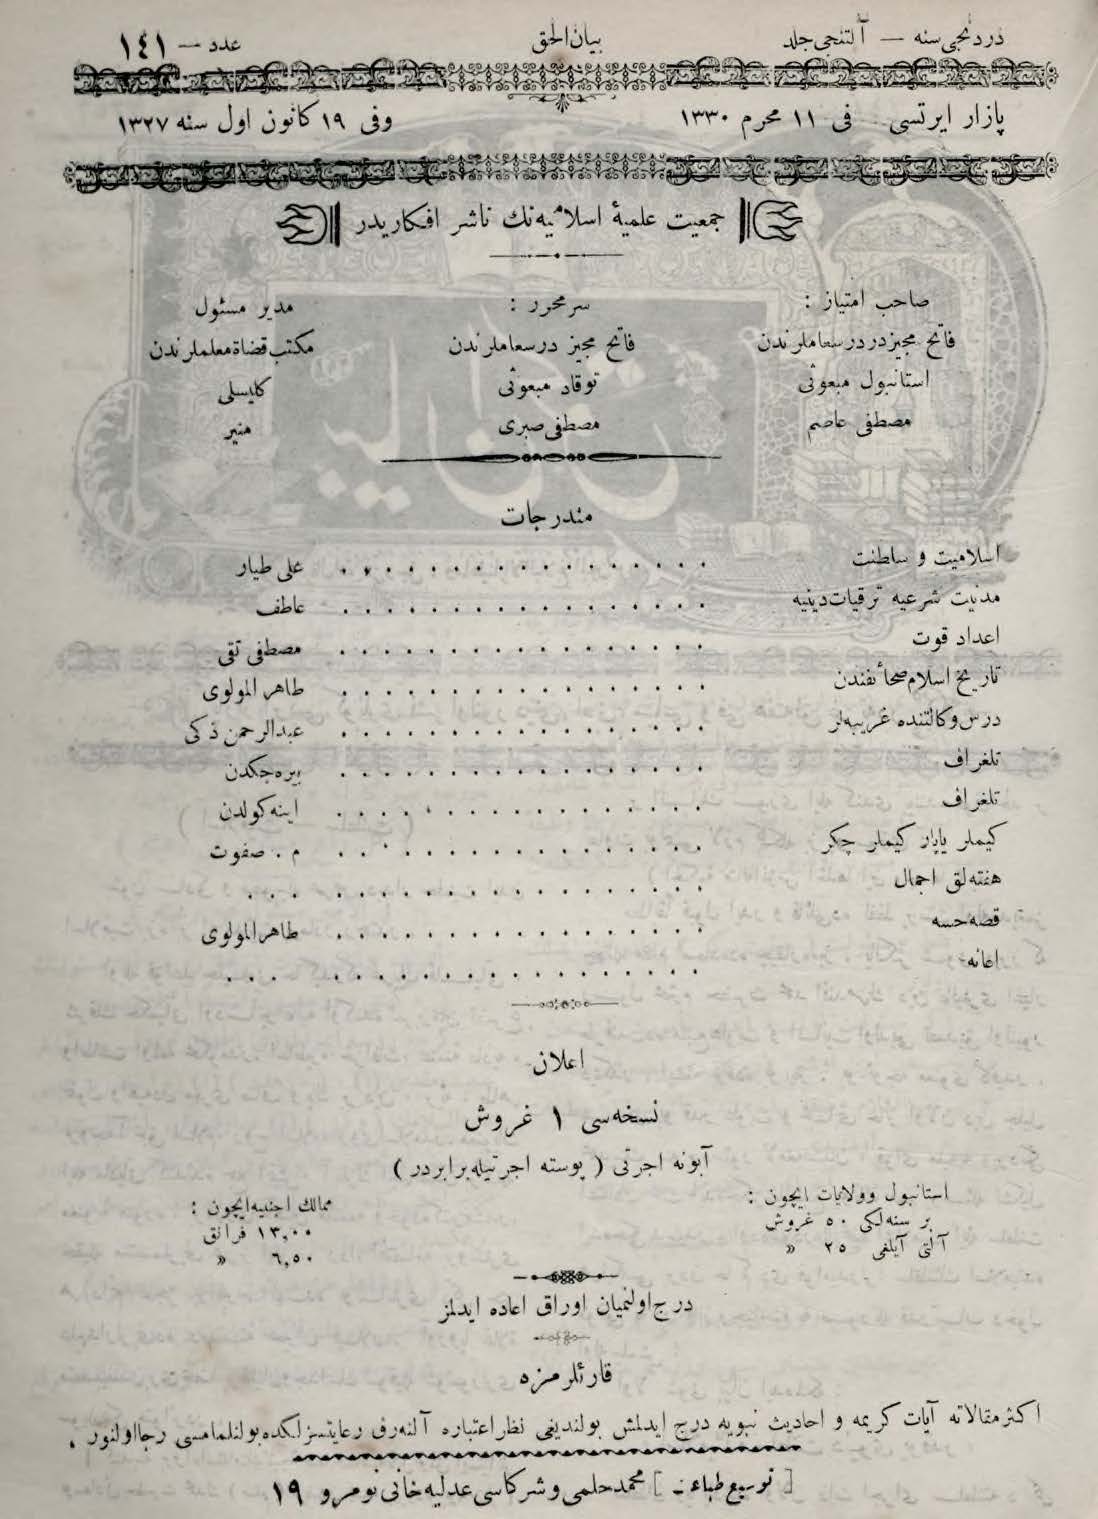 دردنجی سنه — آلتنجی جلد بیان الحق عدد — ١٤١
پازار ایرتسی فی ١١ محرم ١٣٣٠ وفی ١٩ کانون اول سنه ١٣٢٧
جمعیت علمیهٔ اسلامیه‌نك ناشر افکاریدر
صاحب امتیاز : سرمحرر : مدیر مسئول
فاتح مجیز دردرسعاملرندن فاتح مجیز درسعاملرندن مکتب قضاة معلملرندن
استانبول مبعوثی توقاد مبعوثی کلیسلی
مصطفی عاصم مصطفی صبری منیر
مندرجات
اسلامیت و سلطنت . . . . . . . . . . . . . . . . علی طیار
مدنیت شرعیه ترقیات دینیه . . . . . . . . . . . . . . . . عاطف
اعداد قوت . . . . . . . . . . . . . . . . مصطفی تقی
تاریخ اسلام صحائفندن . . . . . . . . . . . . . . . . طاهر المولوی
درس وکالتنده غریبه‌لر . . . . . . . . . . . . . . . . عبدالرحمن ذکی
تلغراف . . . . . . . . . . . . . . . . بیره‌جکدن
تلغراف . . . . . . . . . . . . . . . . اینه کولدن
کیملر یاپار کیملر چکر . . . . . . . . . . . . . . . . م . صفوت
هفته‌لق اجمال . . . . . . . . . . . . . . . . . . .
قصه حسه . . . . . . . . . . . . . . . . طاهرالمولوی
اعانه . . . . . . . . . . . . . . . . . . .
اعلان
نسخه‌سی ١ غروش
آبونه اجرتی ( پوسته اجرتیله برابردر )
استانبول وولایات ایچون : ممالك اجنبیه ایچون :
بر سنه‌لکی ٥٠ غروش ١٣,٠٠ فرانق
آلتی آیلغی ٢٥ » ٦,٥٠ »
درج اولنمیان اوراق اعاده ایدلمز
قارئلرمزه
اکثر مقالاته آیات کریمه و احادیث نبویه درج ایدلمش بولندیغی نظر اعتباره آلنه‌رق رعایتسزلکده بولنلمامسی رجا اولنور .
[ توسیع طباعت ] محمد حلمی و شرکاسی عدلیه خانی نومرو ١٩